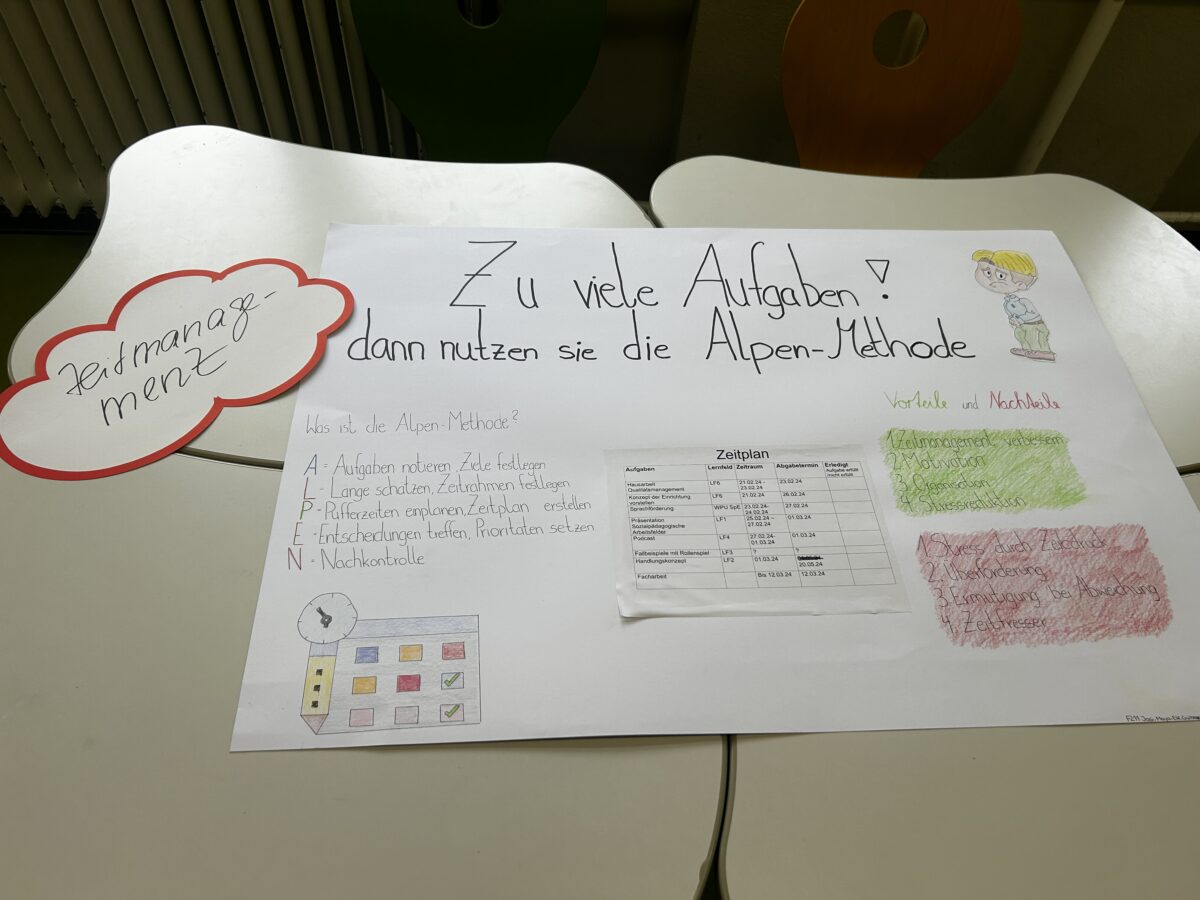 Zeitmanage-
ment
Zu viele Aufgaben!
dann nutzen sie die Alpen-Methode
Was ist die Alpen-Methode?
A = Aufgaben notieren, Ziele festlegen
L - Länge schätzen, Zeitrahmen festlegen
P - Pufferzeiten einplanen, Zeitplan erstellen
E - Entscheidungen treffen, Prioritäten setzen
N - Nachkontrolle
Zeitplan
Aufgaben Lernfeld Zeitraum Abgabetermin Erledigt
Aufgabe erfüllt
/nicht erfüllt
Hausarbeit
Qualitätsmanagement LF6 21.02.24 -
23.02.24 23.02.24
Konzept der Einrichtung
vorstellen LF6 21.02.24 26.02.24
Sprachförderung WPU SpE 23.02.24-
24.02.24 27.02.24
Präsentation
Sozialpädagogische
Arbeitsfelder LF1 25.02.24 -
27.02.24 01.03.24
Podcast LF4 27.02.24-
01.03.24 01.03.24
Fallbeispiele mit Rollenspiel LF3 ? ?
Handlungskonzept LF2 01.03.24
20.05.24
Facharbeit Bis 12.03.24 12.03.24
Vorteile und Nachteile
1. Zeitmanagement verbessern
2. Motivation
3. Organisation
4. Stressreduktion
1. Stress durch Zeitdruck
2. Überforderung
3. Ermutigung bei Abweichung
4. Zeitfresser